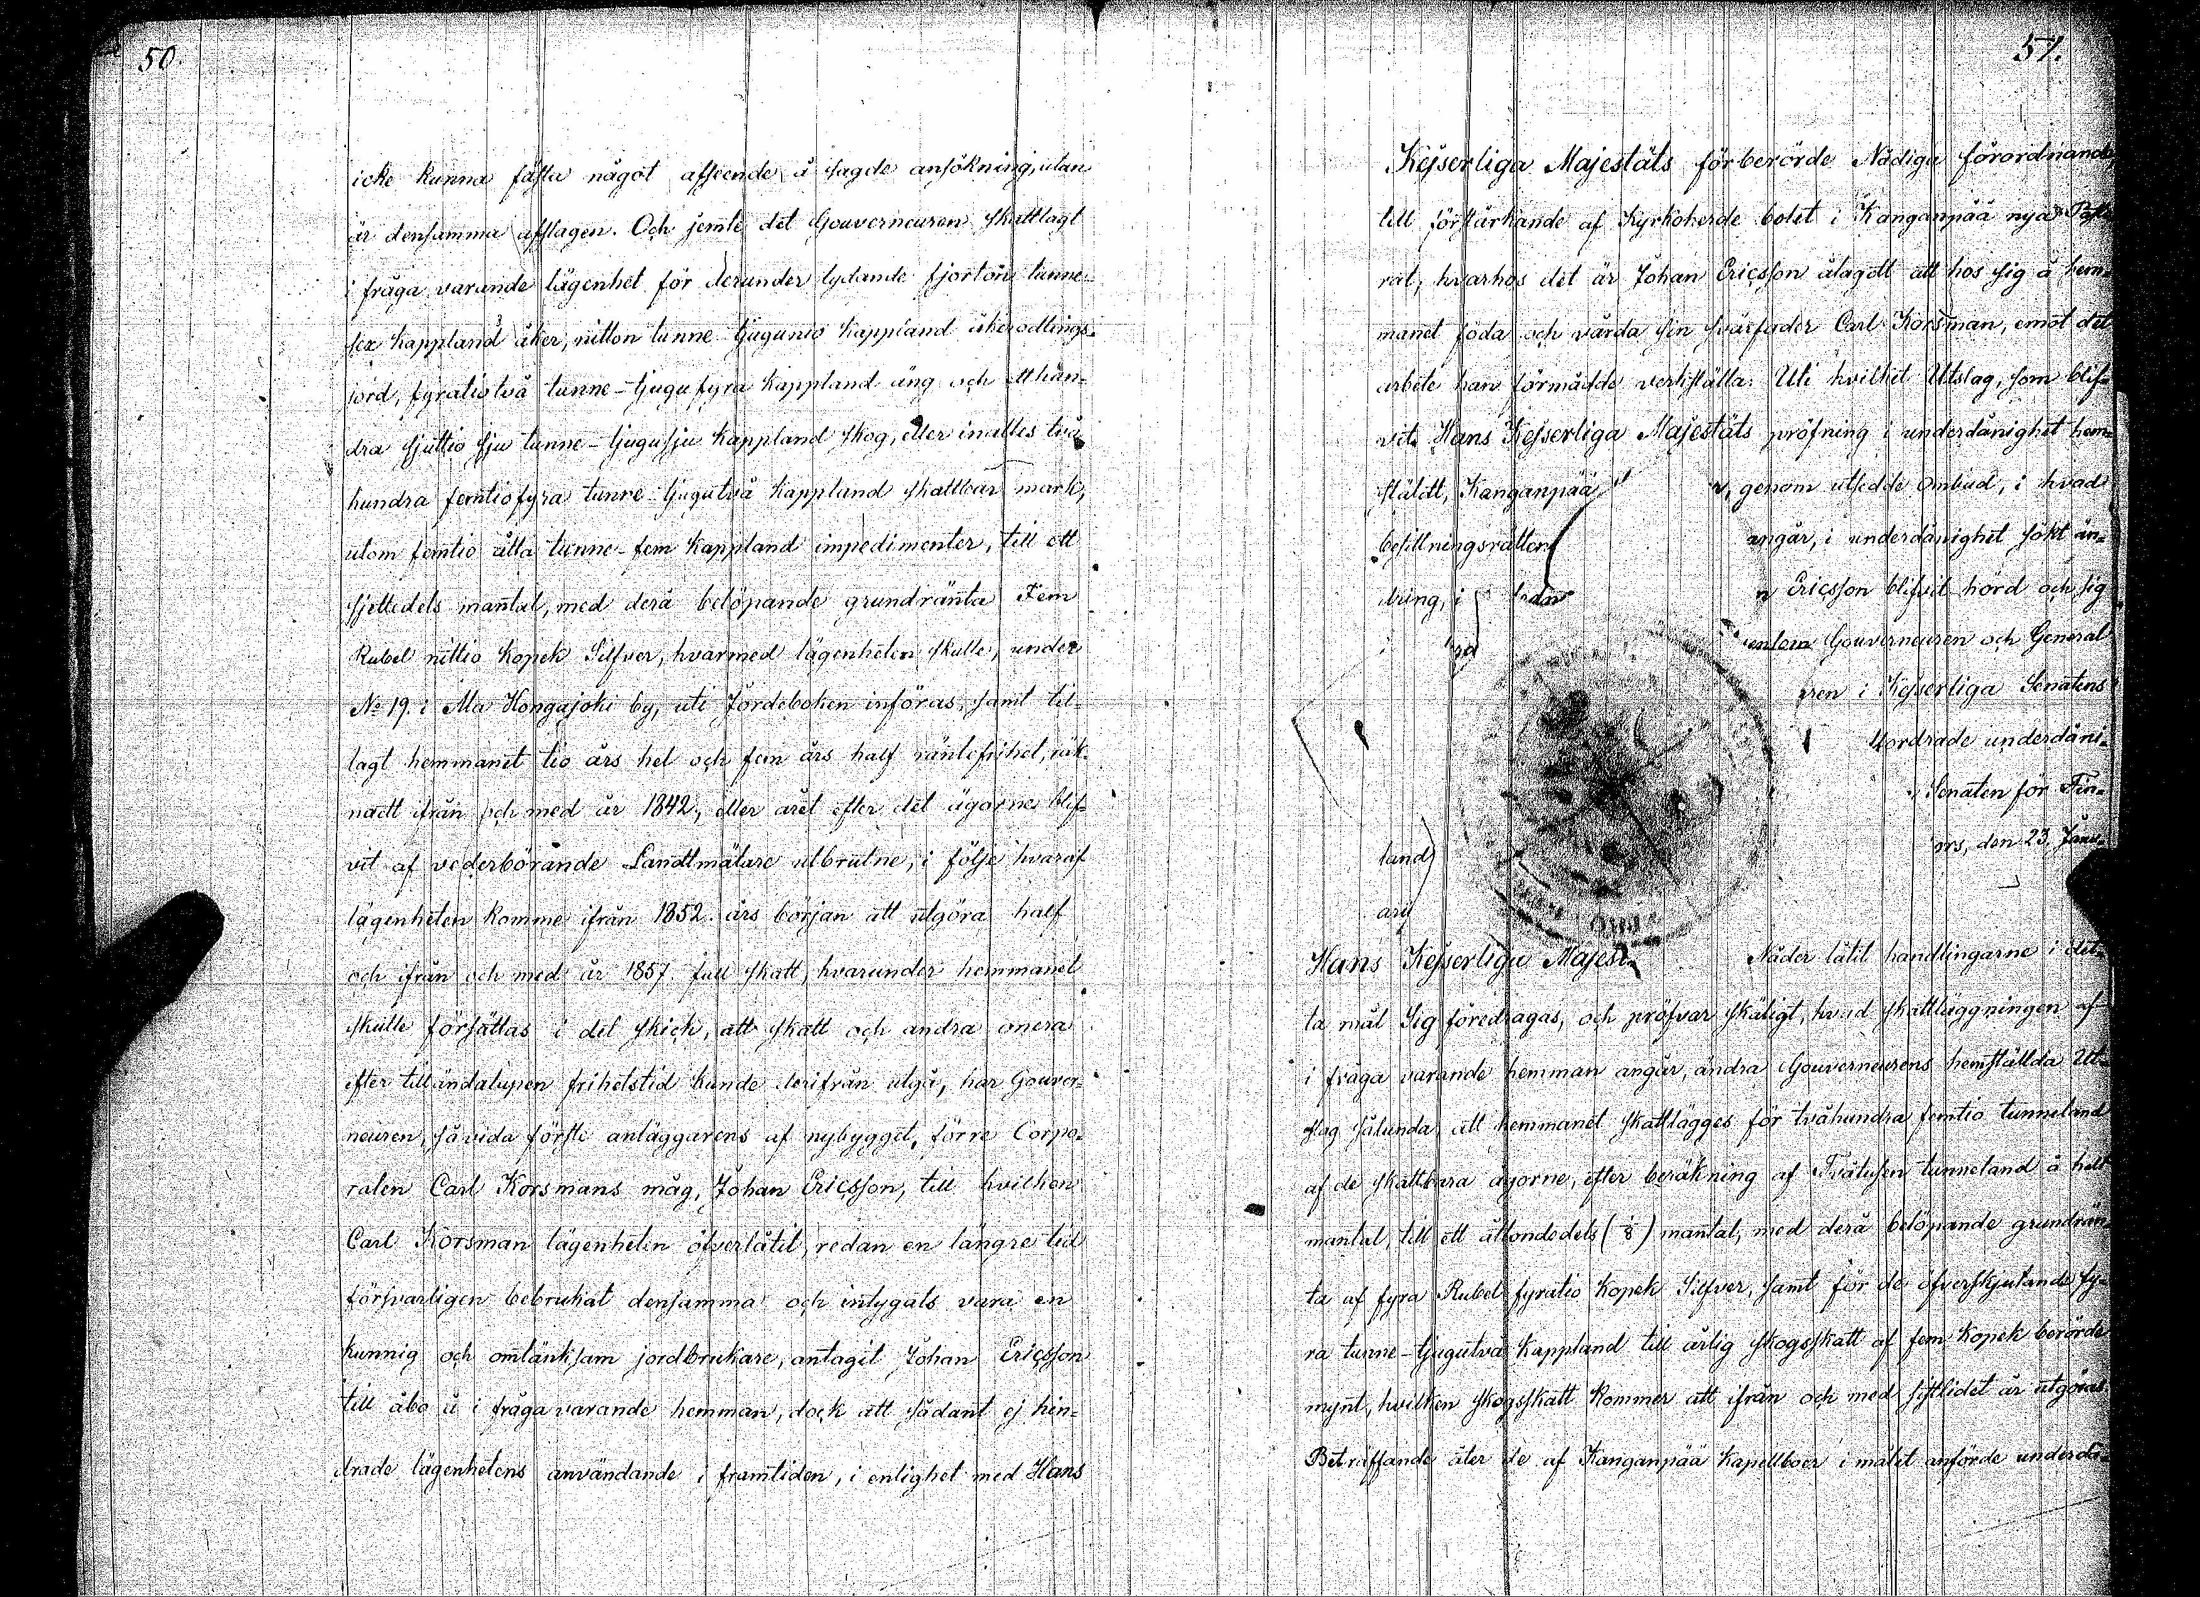 50
icke kunna fästa något afseende å sagde ansökning, utan
är densamma afslagen. Och jemte det Gouverneuren skattlagt
i fråga varande lägenhet för derunder lydande fjorton tunne-
sex kappland åker, nitton tunne tjugunio kappland åkerodlings-
jord, fyratiotvå tunne-tjugufyra kappland äng och etthun-
dra sjuttio sju tunne-tjugusju kappland skog, eller inalles två-
hundra femtiofyra tunne-tjugutvå kappland skattbar mark,
utom femtio åtta tunne-fem kappland impedimenter, till ett
sjettedels mantal, med derå belöpande grundränta Fem
Rubel nittio kopek Silfver, hvarmed lägenheten skulle, under
No 19. i Ala Hongajoki by, uti Jordeboken införas, samt til-
lagt hemmanet tio års hel och fem års half räntefrihet, räk-
nadt ifrån och med år 1842, eller året efter det ägorne blif-
vit af vederbörande Landtmätare utbrutne, i följe hvaraf
lägenheten komme ifrån 1852 års början att utgöra half
och ifrån och med år 1857 full skatt, hvarunder hemmanet
skulle försättas i det skick, att skatt och andra onera
efter tilländalupen frihetstid kunde derifrån utgå, har Gouver-
neuren, såvida förste anläggarens af nybygget, förre Corpo-
ralen Carl Korsmans måg, Johan Ericsson, till hvilken
Carl Korsman lägenheten öfverlåtit, redan en längre tid
försvarligen bebrukat densamma och intygats vara en
kunnig och omtänksam jordbrukare, antagit Johan Ericsson
till åbo å i fråga varande hemman, dock att sådant ej hin-
drade lägenhetens användande i framtiden, i enlighet med Hans
51.
Kejserliga Majestäts förberörde Nådiga förordnande,
till förstärkande af Kyrkoherde bolet i Kanganpää nya Pasto-
rat, hvarhos det är Johan Ericsson ålagdt att hos sig å hem-
manet föda och vårda sin svärfader Carl Korsman, emot det
arbete han förmådde verkställa. Uti hvilket Utslag, som blif-
vit Hans Kejserliga Majestäts pröfning i underdånighet hem-
stäldt, Kanganpää genom utsedde ombud, i hvad
besittningsrätten angår, i underdånighet sökt än-
dring, i Ericsson blifvit hörd och sig
Gouverneuren och General
i Kejserliga Senatens
fordrade underdåni-
Senaten för Fin-
land
den 23. Janu-
arij
Hans Kejserliga Maje Nåder låtit handlingarne i det-
ta mål Sig föredragas, och pröfvar skäligt, hvad skattläggningen af
i fråga varande hemman angår, ändra Gouverneurens hemställda Ut-
slag sålunda, att hemmanet skattlägges för tvåhundra femtio tunneland
af de skattbara ägorne, efter beräkning af Tvåtusen tunneland å helt
mantal, till ett åttondedels (1/8) mantal, med derå belöpande grundrän-
ta af fyra Rubel fyratio kopek Silfver, samt för de öfverskjutande fy-
ra tunne-tjugutvå kappland till årlig skogsskatt af fem kopek berörde
mynt, hvilken skogsskatt kommer att ifrån och med sistlidet år utgöras.
Beträffande åter de af Kanganpää Kapellboer i målet anförde underdå-